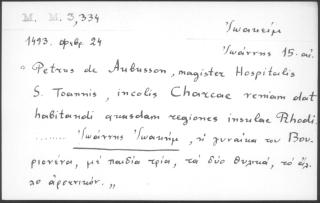 M. M. 3,334
Ἰωακείμ
1493. φεβρ. 24
Ἰωάννης 15. αἰ.
"Petrus de Aubusson, magister Hospitalis
S. Ioannis, incolis Charcae veniam dat
habitandi quasdam regiones insulae Rhodi.
......... Ἰωάννης Ἰωακήμ, κὶ γυναίκα του Βου-
ριονένα, μὲ παιδία τρία, τὰ δύο θυλικά, τὸ ἄλ-
λο ἀρσενικόν.,,